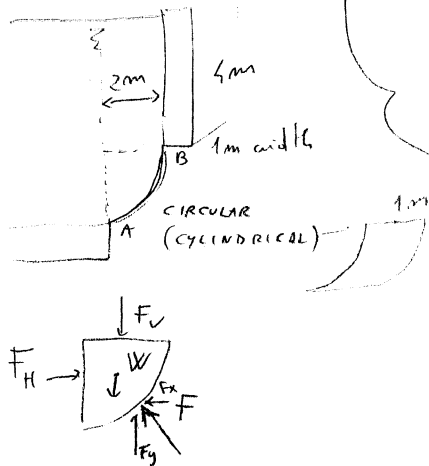 2m
4m
B
1m width
A
CIRCULAR
(CYLINDRICAL)
1m
Fv
FH
W
Fx
F
Fy